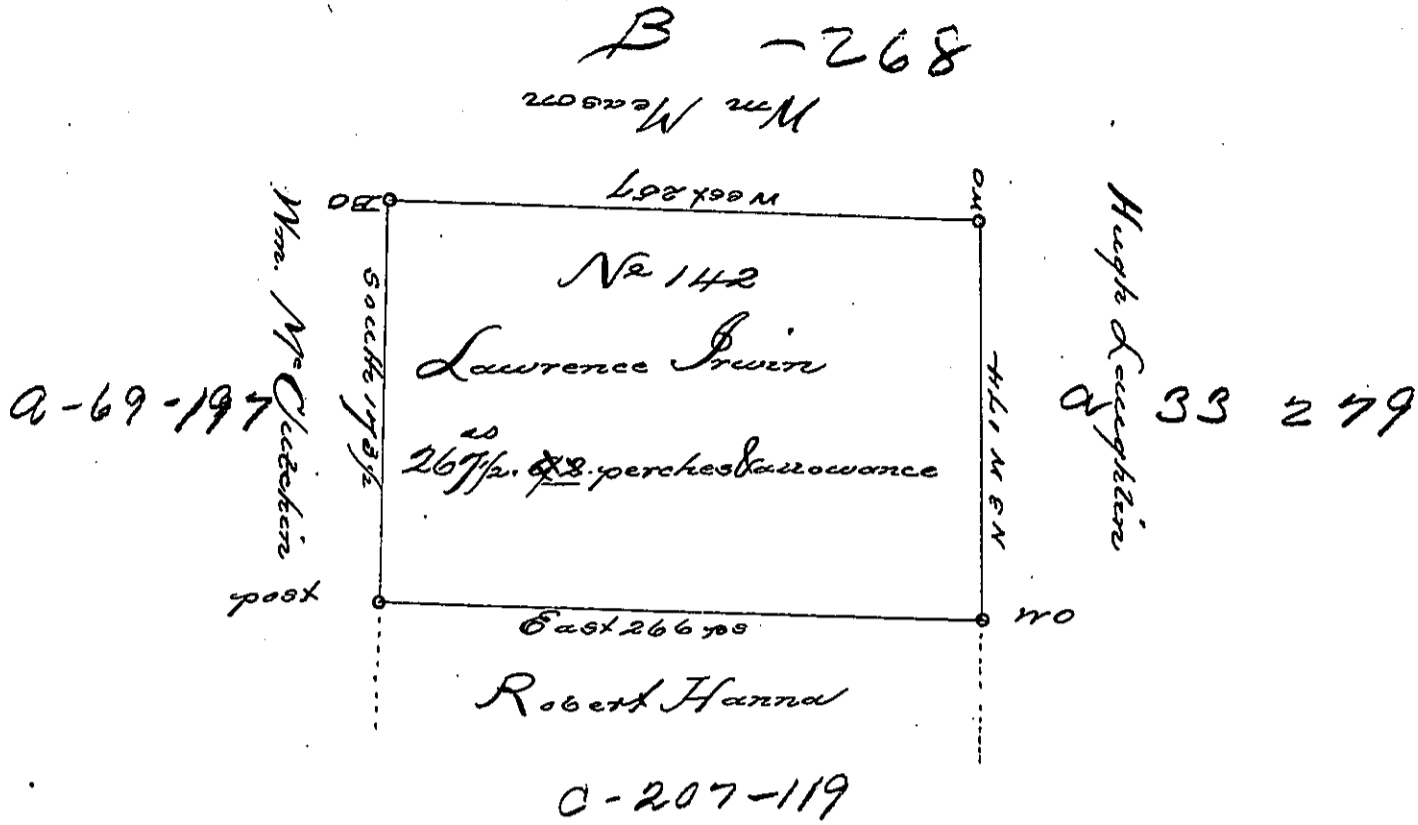 B - 268
Wm Meason
West 267
BO
WO
Wm. McCutchin
South 173½
Nº 142
Lawrence Irwin
as
267½. perches & allowance
N 3 W 174
Hugh Laughlin
A-69-197
33 279
post
East 266 ps
WO
Robert Hanna
C-207-119